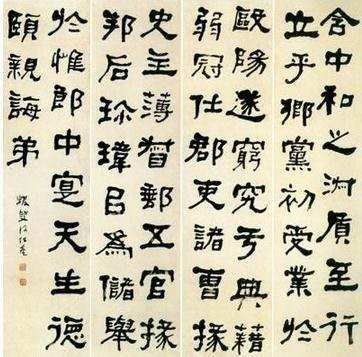 含中和之淑質至行
立乎鄉黨初受業於
歐陽遂窮究亏典籍
弱冠仕郡吏諸曹掾
史主薄督郵五官掾
邦后珍瑋㠯為儲舉
於惟郎中寔天生德
頤親誨弟